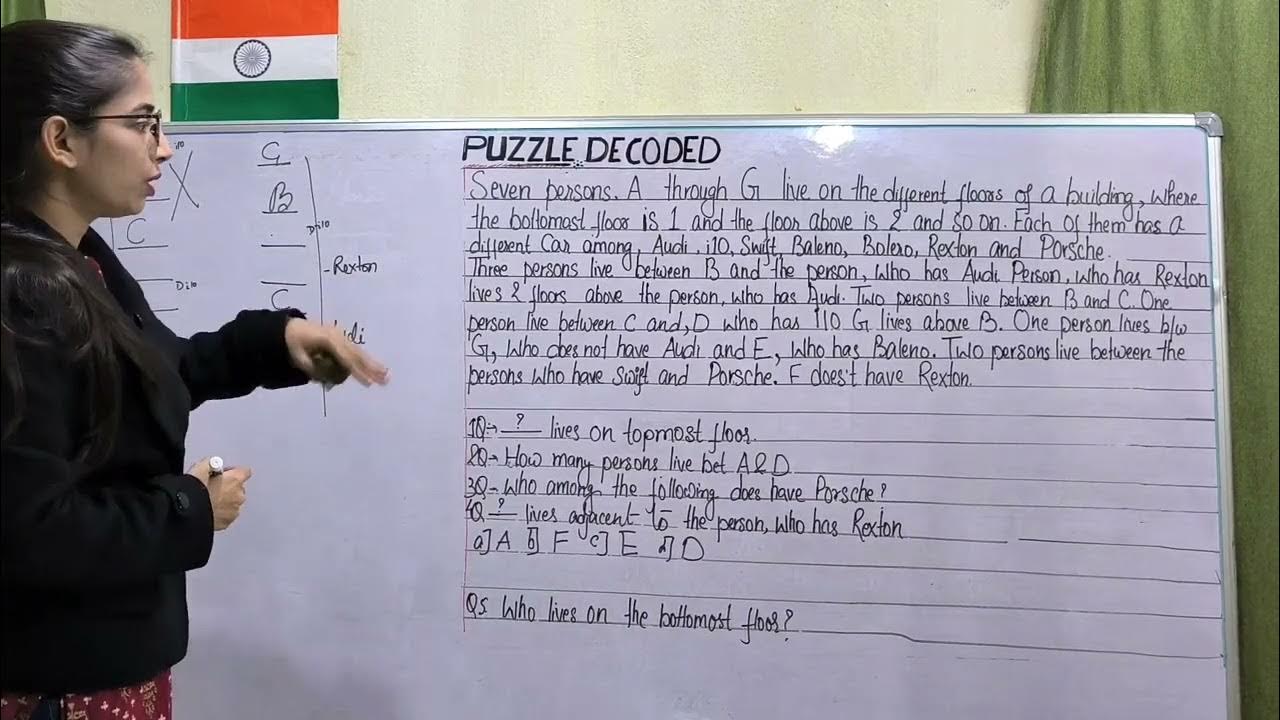 PUZZLE DECODED
Seven persons. A through G live on the different floors of a building, where
the bottomost floor is 1 and the floor above is 2 and so on. Each of them has a
different Car among, Audi, i10, Swift, Baleno, Bolero, Rexton and Porsche.
Three persons live between B and the person, who has Audi. Person, who has Rexton
lives 2 floors above the person, who has Audi. Two persons live between B and C. One
person live between C and, D who has i10 G lives above B. One person lives b/w
G, who does not have Audi and E, who has Baleno. Two persons live between the
persons who have Swift and Porsche. F does't have Rexton.
1Q→ ? lives on topmost floor.
2Q→ How many persons live bet A & D
3Q- who among the following does have Porsche?
4Q ? lives adjacent to the person, who has Rexton
a] A b] F c] E d] D
Q5 Who lives on the bottomost floor?
i10
C
D i10
G
B
D i10
Rexton
C